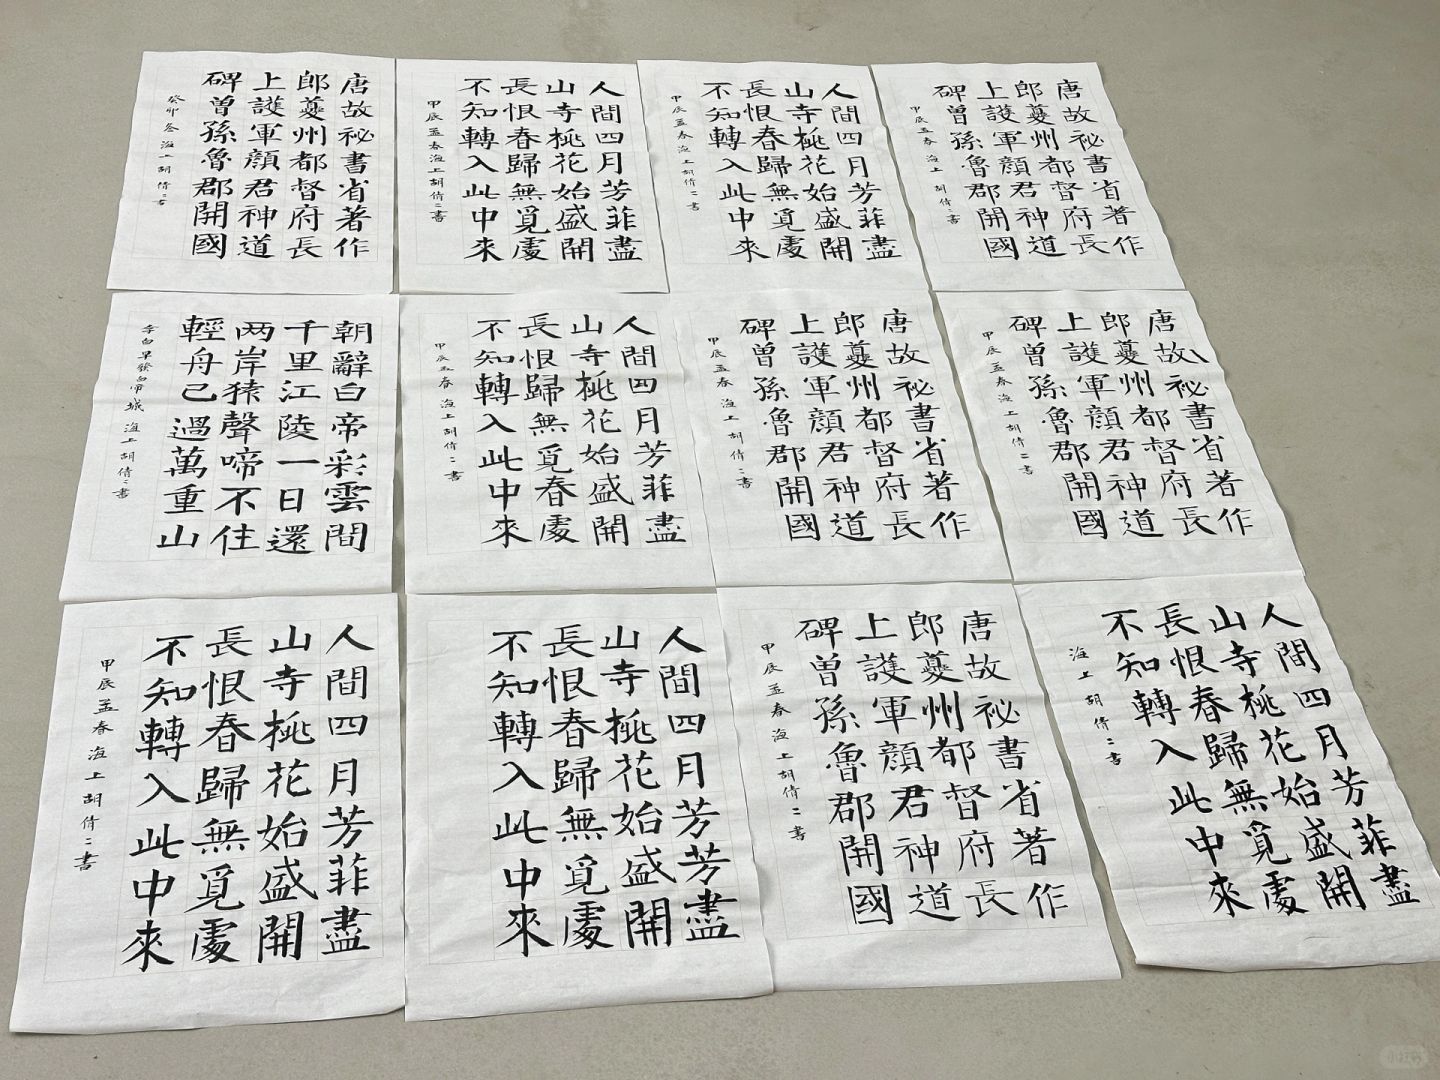 唐故祕書省著作
郎夔州都督府長
上護軍顏君神道
碑曾孫魯郡開國
癸卯冬海上胡倩〻書
人間四月芳菲盡
山寺桃花始盛開
長恨春歸無覓處
不知轉入此中來
甲辰孟春海上胡倩〻書
人間四月芳菲盡
山寺桃花始盛開
長恨春歸無覓處
不知轉入此中來
甲辰孟春海上胡倩〻書
唐故祕書省著作
郎夔州都督府長
上護軍顏君神道
碑曾孫魯郡開國
甲辰孟春海上胡倩〻書
朝辭白帝彩雲間
千里江陵一日還
两岸猿聲啼不住
輕舟已過萬重山
李白早發白帝城海上胡倩〻書
人間四月芳菲盡
山寺桃花始盛開
長恨歸無覓春處
不知轉入此中來
甲辰孟春海上胡倩〻書
唐故祕書省著作
郎夔州都督府長
上護軍顏君神道
碑曾孫魯郡開國
甲辰孟春海上胡倩〻書
唐故祕書省著作
郎夔州都督府長
上護軍顏君神道
碑曾孫魯郡開國
甲辰孟春海上胡倩〻書
人間四月芳菲盡
山寺桃花始盛開
長恨春歸無覓處
不知轉入此中來
甲辰孟春海上胡倩〻書
人間四月芳芳盡
山寺桃花始盛開
長恨春歸無覓處
不知轉入此中來
唐故祕書省著作
郎夔州都督府長
上護軍顏君神道
碑曾孫魯郡開國
甲辰孟春海上胡倩〻書
人間四月芳菲盡
山寺桃花始盛開
長恨春歸無覓處
不知轉入此中來
海上胡倩〻書
小红书